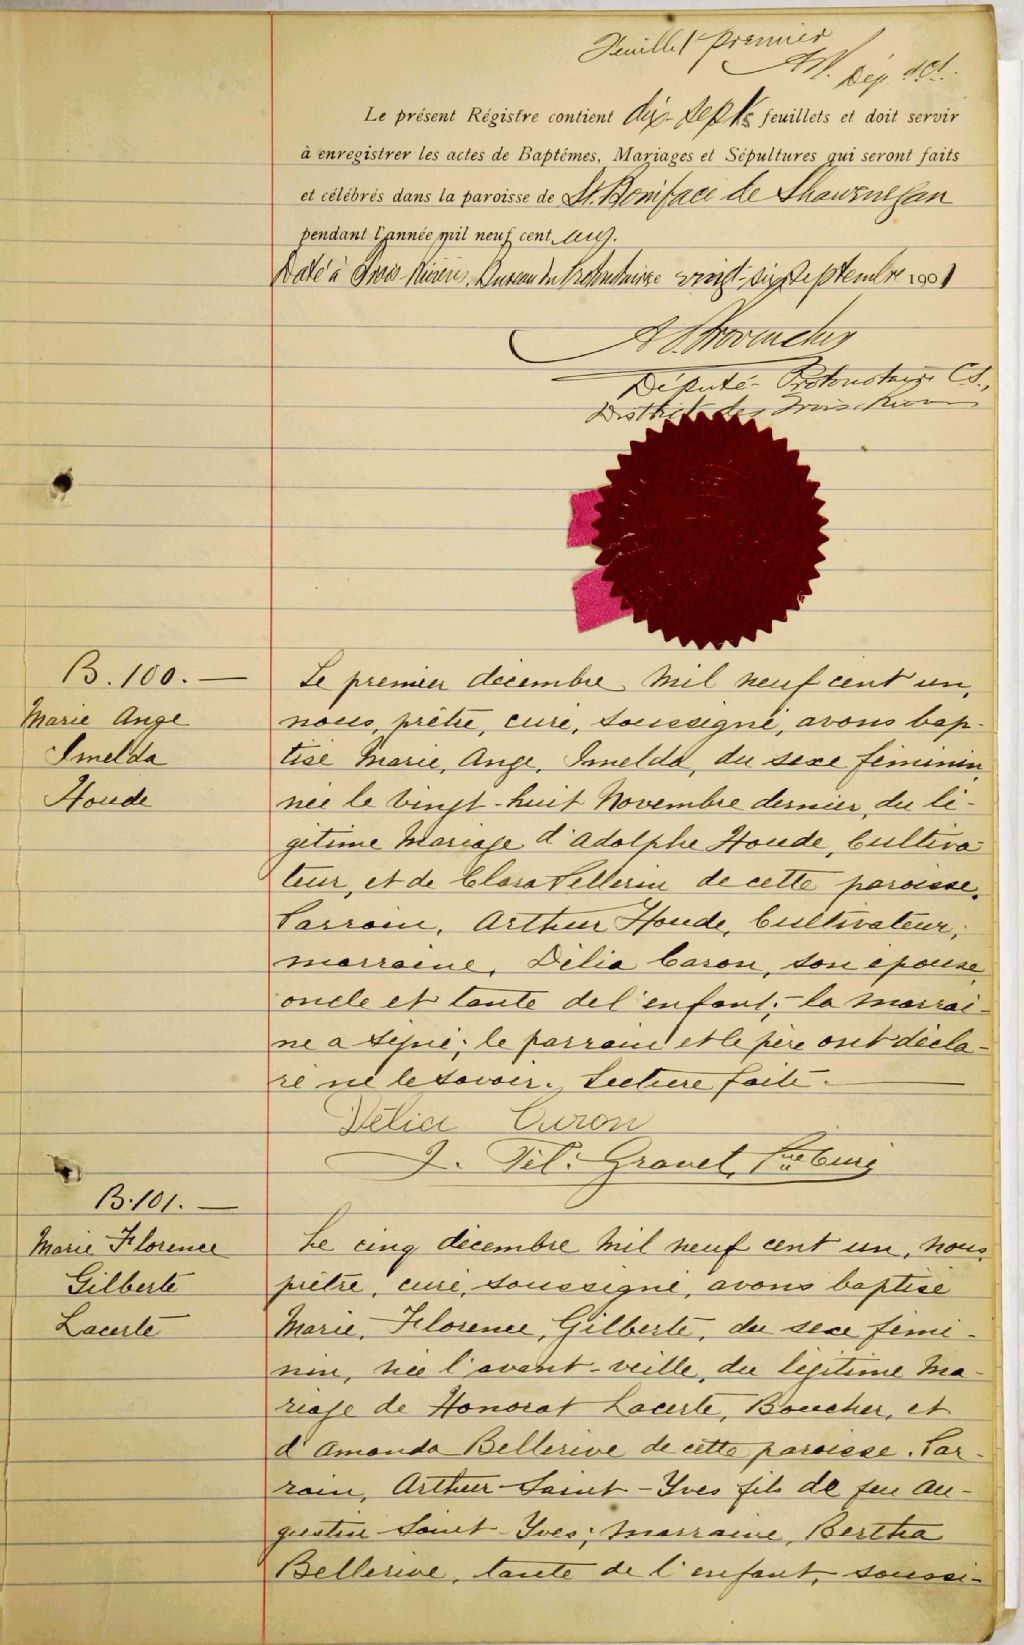 Feuillet premier
Dép. 
Le présent Régistre contient dix-sept feuillets et doit servir
à enregistrer les actes de Baptêmes, Mariages et Sépultures qui seront faits
et célébrés dans la paroisse de St. Boniface de Shawenegan
pendant l'année mil neuf cent un.
Daté à Trois-Rivières, Bureau du Protonotaire vingt-six septembre 1901
Provencher
Député-Protonotaire C.S.,
District des Trois Rivières
B. 100. —
Marie Ange
Imelda
Houde
Le premier décembre mil neuf cent un,
nous, prêtre, curé, soussigné, avons bap-
tisé Marie, Ange, Imelda, du sexe féminin
née le vingt-huit Novembre dernier, du lé-
gitime Mariage d'Adolphe Houde, Cultiva-
teur, et de Clara Pellerin de cette paroisse.
Parrain, Arthur Houde, Cultivateur;
marraine, Délia Caron, son épouse,
oncle et tante de l'enfant; - la marrai-
ne a signé; le parrain et le père ont décla-
ré ne le savoir. Lecture faite. —
Délia Caron
J. Tél. Gravel, Ptre Curé
B. 101. —
Marie Florence
Gilberte
Lacerte
Le cinq décembre mil neuf cent un, nous,
prêtre, curé, soussigné, avons baptisé
Marie, Florence, Gilberte, du sexe fémi-
nin, née l'avant-veille, du légitime Ma-
riage de Honorat Lacerte, Boucher, et
d'Amanda Bellerive de cette paroisse. Par-
rain, Arthur Saint-Yves fils de feu Au-
gustin Saint-Yves; marraine, Bertha
Bellerive, tante de l'enfant, soussi-